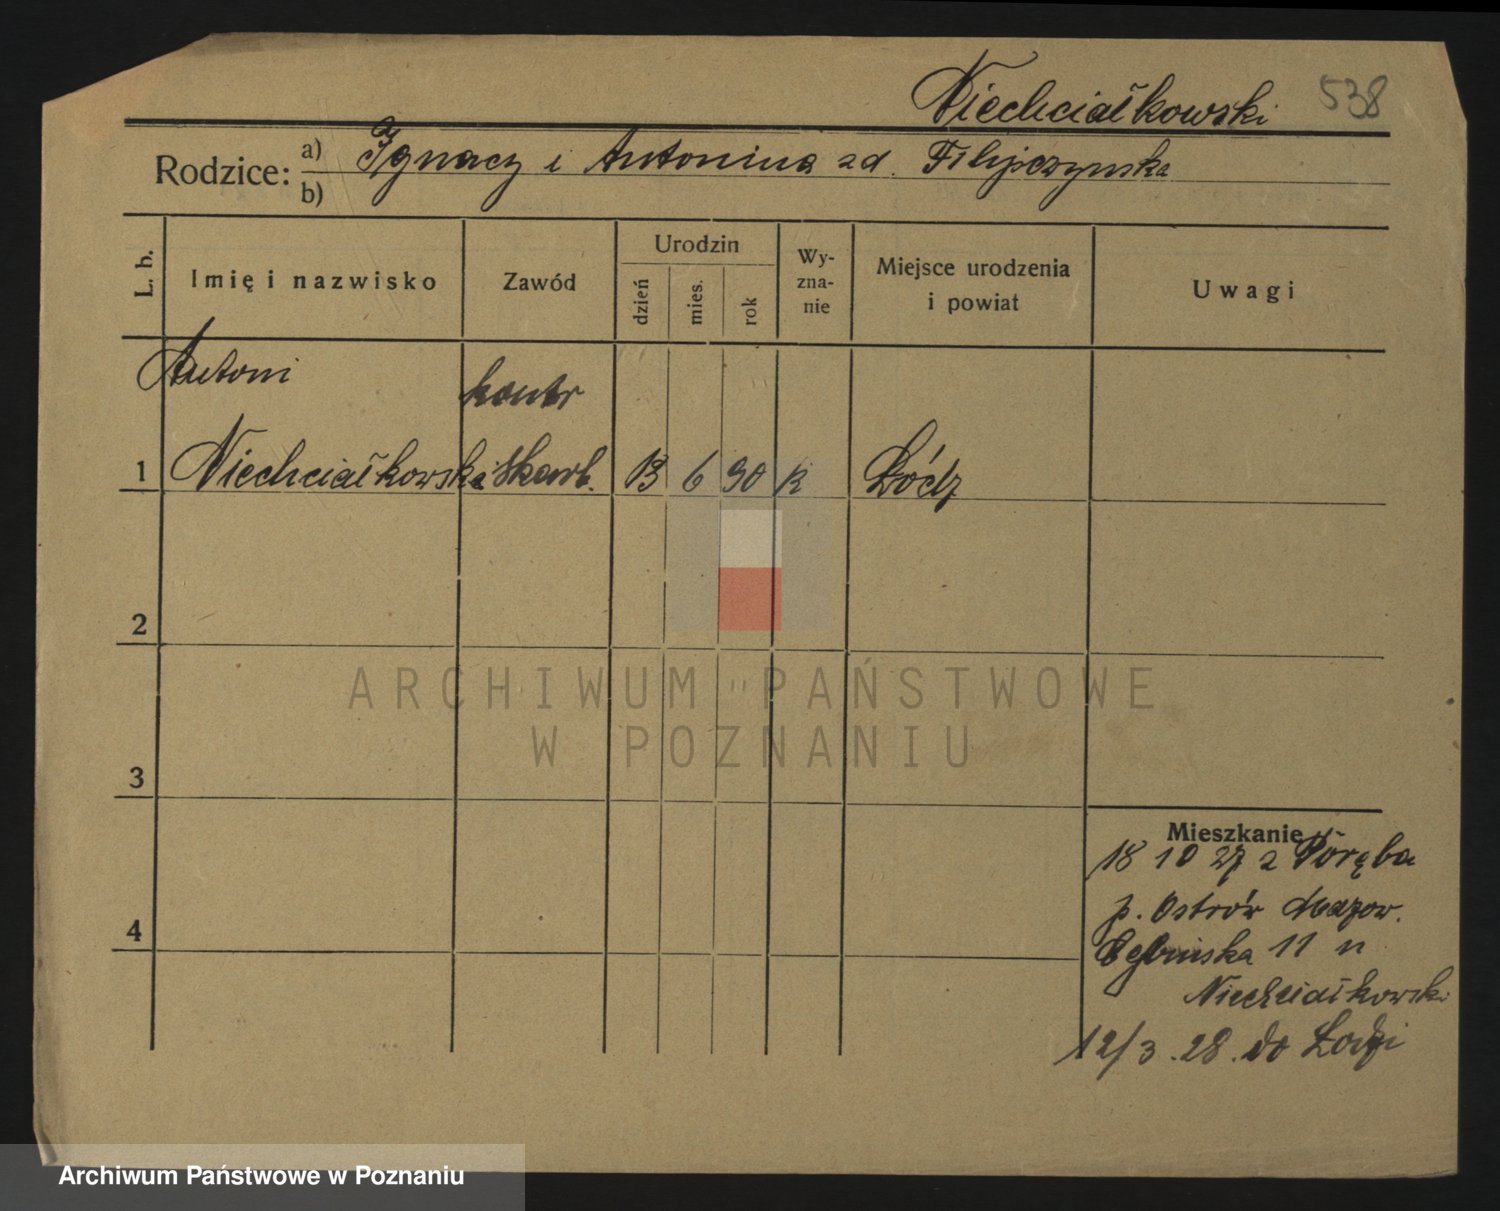 Niechciałkowski 538
Rodzice: a) Ignacy i Antonina zd. Filipczynska
b)
L. b. Imię i nazwisko Zawód Urodzin dzień mies. rok Wy-zna-nie Miejsce urodzenia i powiat Uwagi
Antoni kontr
1 Niechciałkowski Skarb. 13 6 90 k Łódz
2
3
4
Mieszkanie
18 10 27 z Poręba
p. Ostrów Mazow.
11 u
Niechciałkowski
12/3. 28. do Łodzi
ARCHIWUM PAŃSTWOWE
W POZNANIU
Archiwum Państwowe w Poznaniu